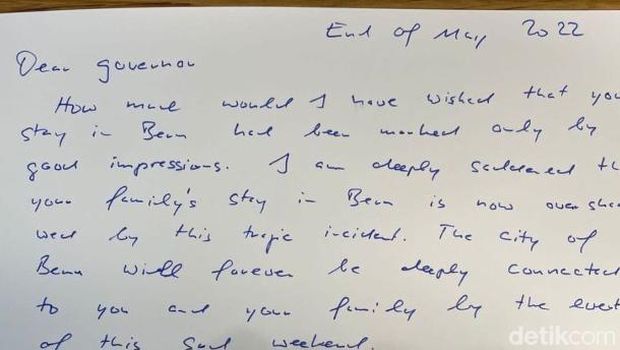 End of May 2022
Dear governor
How much would I have wished that you
stay in Bern had been marked only by
good impressions. I am deeply saddened th
your family's stay in Bern is now oversha
wed by this tragic incident. The city of
Bern will forever be deeply connected
to you and your family by the event
of this sad weekend.
detikcom